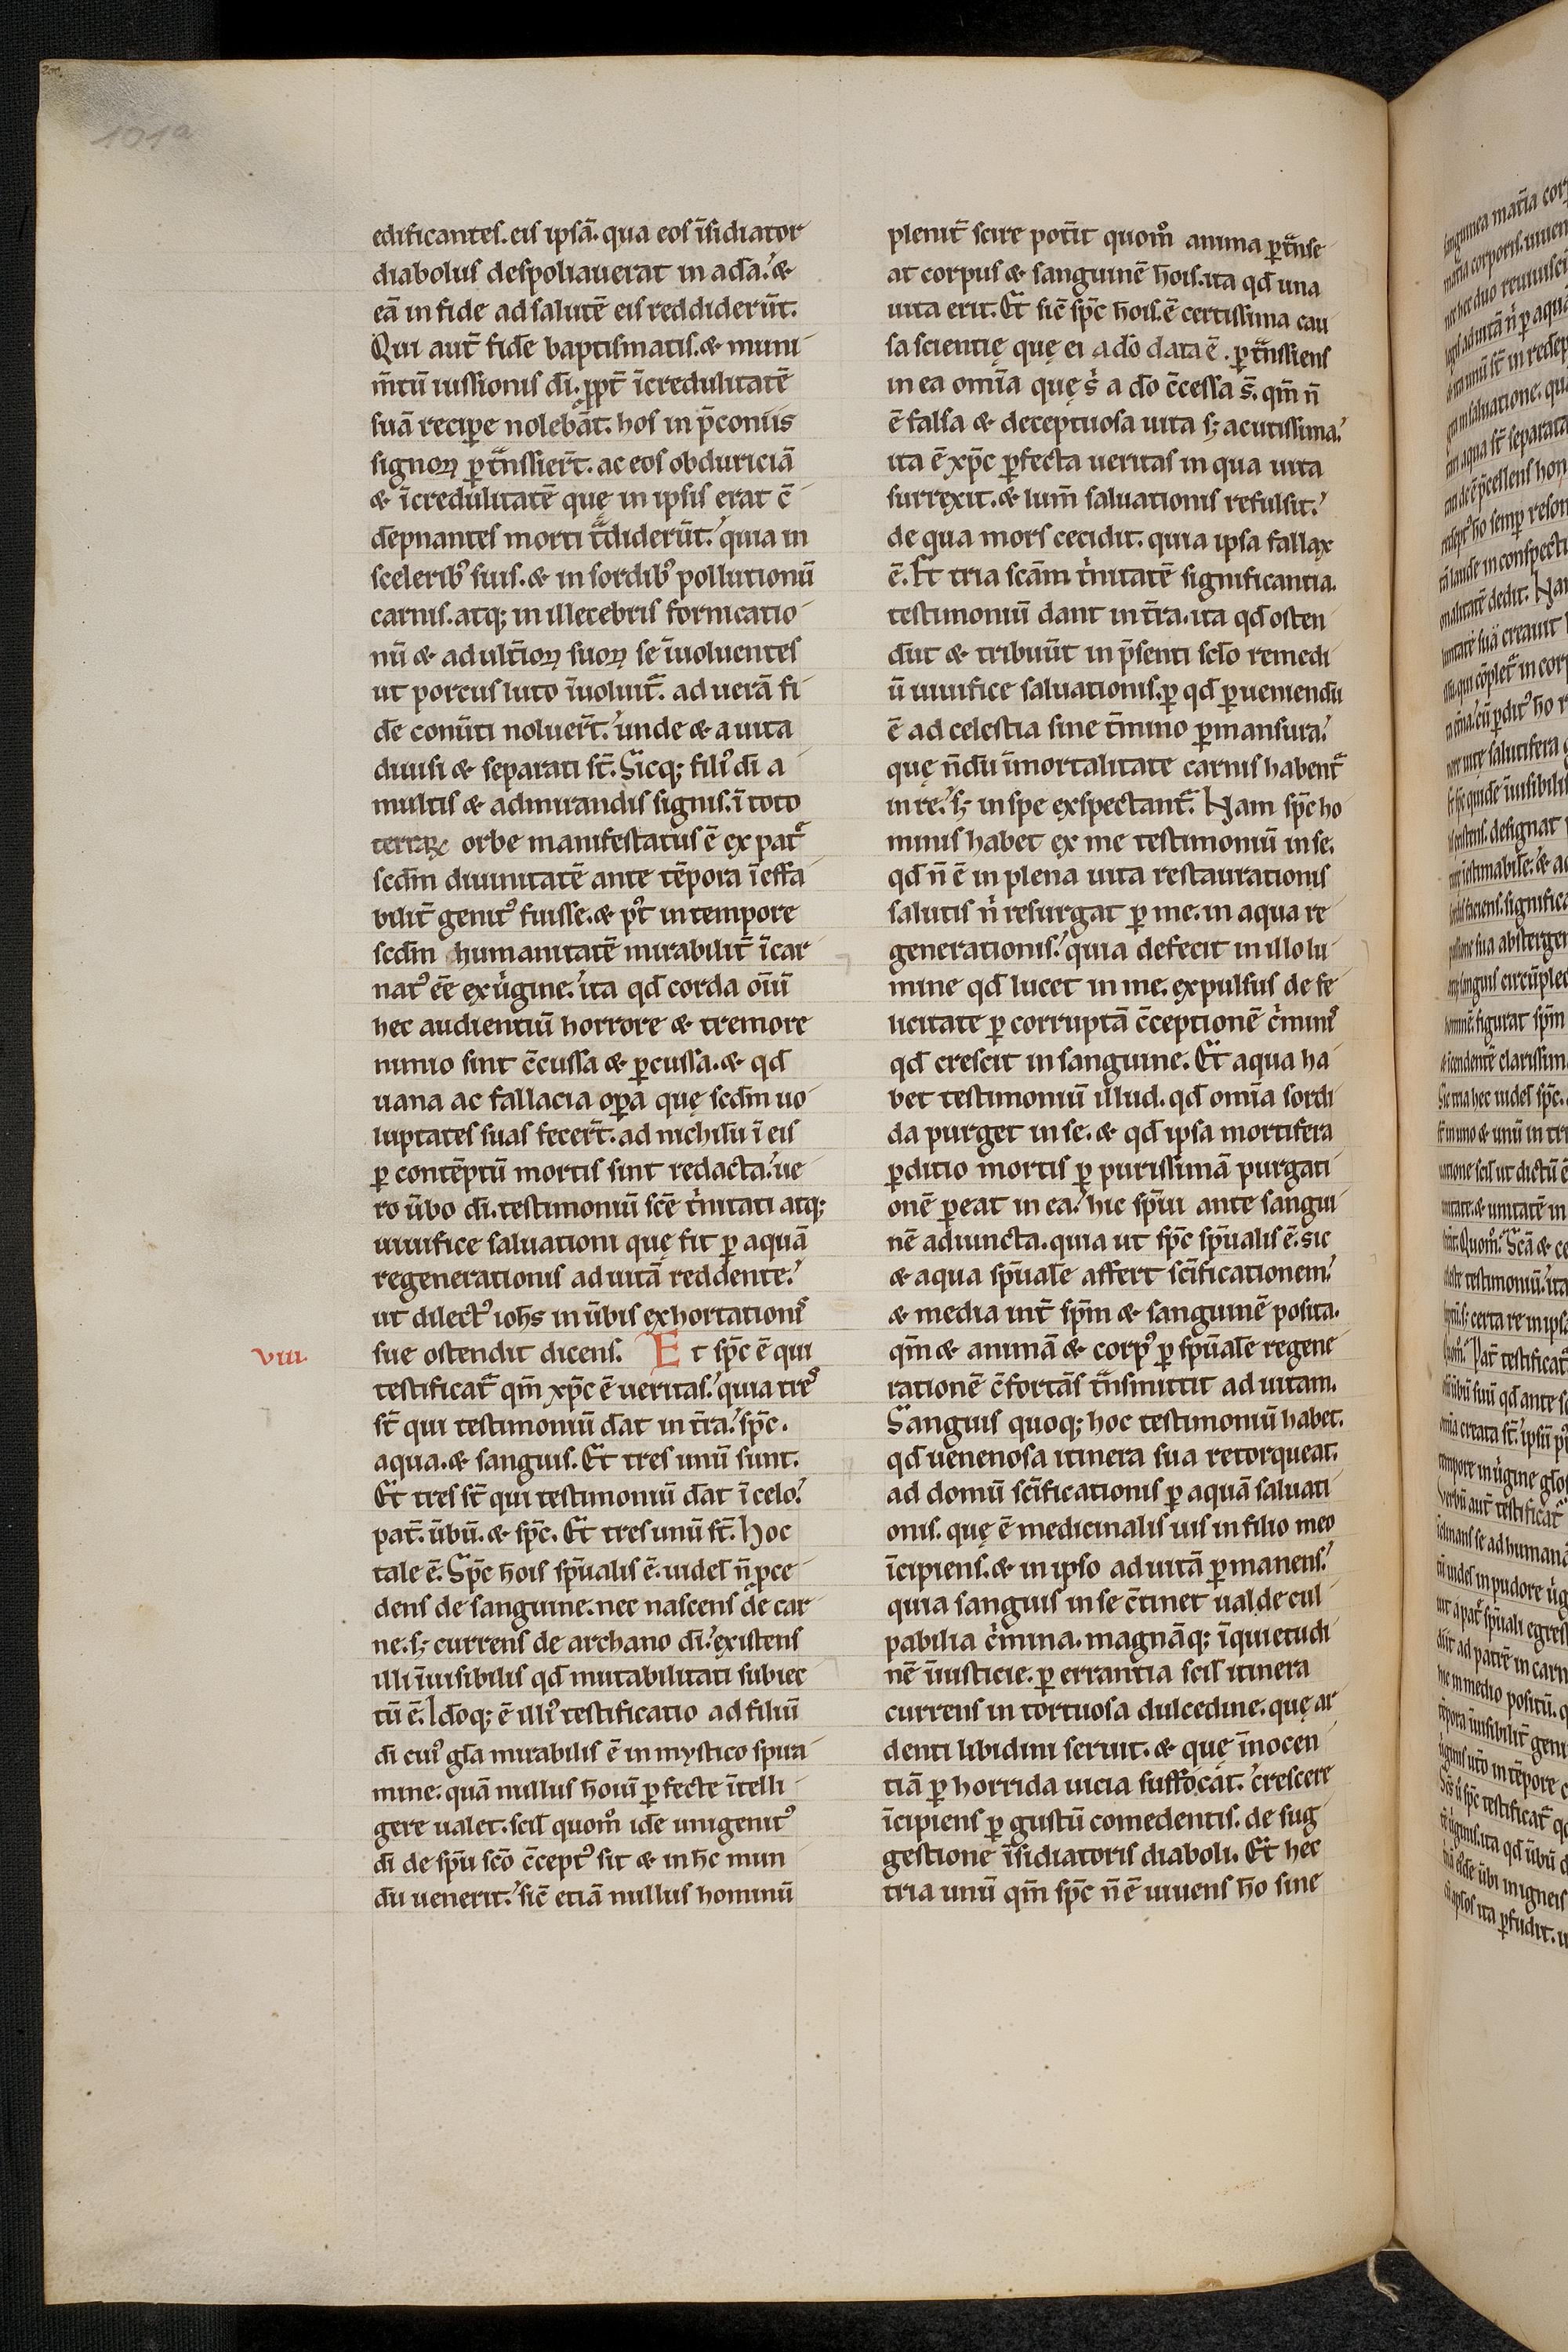 101a
edificantes. eis ipsā. qua eos īsidiator
diabolus despoliauerat in adā. &
eā in fide ad salutē eis reddiderūt.
Qui aut̄ fidē baptismatis. & muni
m̄tū iussionis dī. ꝓpt̄ īcredulitatē
suā recipe nolebāt. hos in p̄coniis
signoꝝ ꝑt̄nssier̄t. ac eos obduriciā
& īcredulitatē quę in ipsis erat c̄
dēpnantes morti t̄diderūt. quia in
sceleribꝰ suis. & in sordibꝰ pollutionū
carnis. atq; in illecebris fornicatio
nū & adult̄ioꝝ suoꝝ se īuoluentes
ut porcus luto īuoluit̄. ad uerā fi
dē conūti noluer̄t. unde & a uita
diuisi & separati st̄. Sicq; filiꝰ dī a
multis & admirandis signis. ī toto
terraꝝ orbe manifestatus ē ex pat̄
scd̄m diuinitatē ante tēpora īeffa
bilit̄ genitꝰ fuisse. & pꝰt in tempore
scd̄m humanitatē mirabilit̄ īcar
natꝰ eē ex ūgine. ita qd̄ corda oīū
hec audientiū horrore & tremore
nimio sint c̄cussa & ꝑcussa. & qd̄
uana ac fallacia oꝑa quę scd̄m uo
luptates suas fecer̄t. ad nichilū ī eis
ꝑ contēptū mortis sint redacta. ue
ro ūbo dī. testimoniū scē t̄nitati atq;
uiuifice saluationi quę fit ꝑ aquā
regenerationis ad uitā reddente.
ut dilectꝰ ioh̄s in ūbis exhortationiˢ
viii. sue ostendit dicens. Et sp̄c ē qui
testificat̄ qm̄ xp̄c ē ueritas. quia treˢ
st̄ qui testimoniū dāt in t̄ra. sp̄c.
aqua. & sanguis. Et tres unū sunt.
Et tres st̄ qui testimoniū dāt ī celo.
pat̄. ūbū. & sp̄c. Et tres unū st̄. Hoc
tale ē. Sp̄c h̄ois sp̄ualis ē. uidel̄ n̄ ꝓce
dens de sanguine. nec nascens de car
ne. s; currens de archano dī. existens
illi īuisibilis qd̄ mutabilitati subiec
tū ē. Idōq; ē illiꝰ testificatio ad filiū
dī cuiꝰ gl̄a mirabilis ē in mystico spira
mine. quā nullus h̄oiū ꝑfecte ītelli
gere ualet. scil̄ quom̊ idē unigenitꝰ
dī de sp̄u scō c̄ceptꝰ sit & in h̄c mun
dū uenerit. sic̄ etiā nullus hominū
plenit̄ scire pot̄it quom̊ anima ꝑt̄nse
at corpus & sanguinē h̄ois. ita qd̄ una
uita erit. Et sic̄ sp̄c h̄ois. ē certissima cau
sa scientię quę ei a dō data ē. ꝑt̄nssiens
in ea om̄ia quę s̄ a dō c̄cessa s̄. qm̄ n̄
ē falsa & deceptuosa uita s; acutissima.
ita ē xp̄c ꝑfecta ueritas in qua uita
surrexit. & lum̄ saluationis refulsit.
de qua mors cecidit. quia ipsa fallax
ē. Et tria scām t̄nitatē significantia.
testimoniū dant in t̄ra. ita qd̄ osten
dūt & tribuūt in p̄senti scl̄o remedi
ū uiuifice saluationis. ꝑ qd̄ ꝑueniendū
ē ad celestia sine t̄mino ꝑmansura.
quę n̄dū īmortalitate carnis habent̄
in re. s; in spe exspectant̄. Nam sp̄c ho
minis habet ex me testimoniū in se.
qd̄ n̄ ē in plena uita restaurationis
salutis n̄ resurgat ꝑ me. in aqua re
generationis. quia defecit in illo lu
mine qd̄ lucet in me. expulsus de fe
licitate ꝑ corruptā c̄ceptionē c̄miniˢ
qd̄ crescit in sanguine. Et aqua ha
bet testimoniū illud. qd̄ om̄ia sordi
da purget in se. & qd̄ ipsa mortifera
ꝑditio mortis ꝑ purissimā purgati
onē ꝑeat in ea. hic sp̄ui ante sangui
nē adiuncta. quia ut sp̄c sp̄ualis ē. sic
& aqua sp̄uale affert scīficationem.
& media int̄ sp̄m & sanguinē posita.
qm̄ & animā & corpꝰ ꝑ sp̄uale regene
rationē c̄fortās t̄nsmittit ad uitam.
Sanguis quoq; hoc testimoniū habet.
qd̄ uenenosa itinera sua retorqueat.
ad domū scīficationis ꝑ aquā saluati
onis. quę ē medicinalis uis in filio meo
īcipiens. & in ipso ad uitā ꝑmanens.
quia sanguis in se c̄tinet ualde cul
pabilia c̄mina. magnāq; īquietudi
nē īiusticie. ꝑ errantia scil̄ itinera
currens in tortuosa dulcedine. quę ar
denti libidini seruit. & quę īnocen
tiā ꝑ horrida uicia suffocāt. crescere
īcipiens ꝑ gustū comedentis. de sug
gestione īsidiatoris diaboli. Et hec
tria unū qm̄ sp̄c n̄ ē uiuens h̄o sine